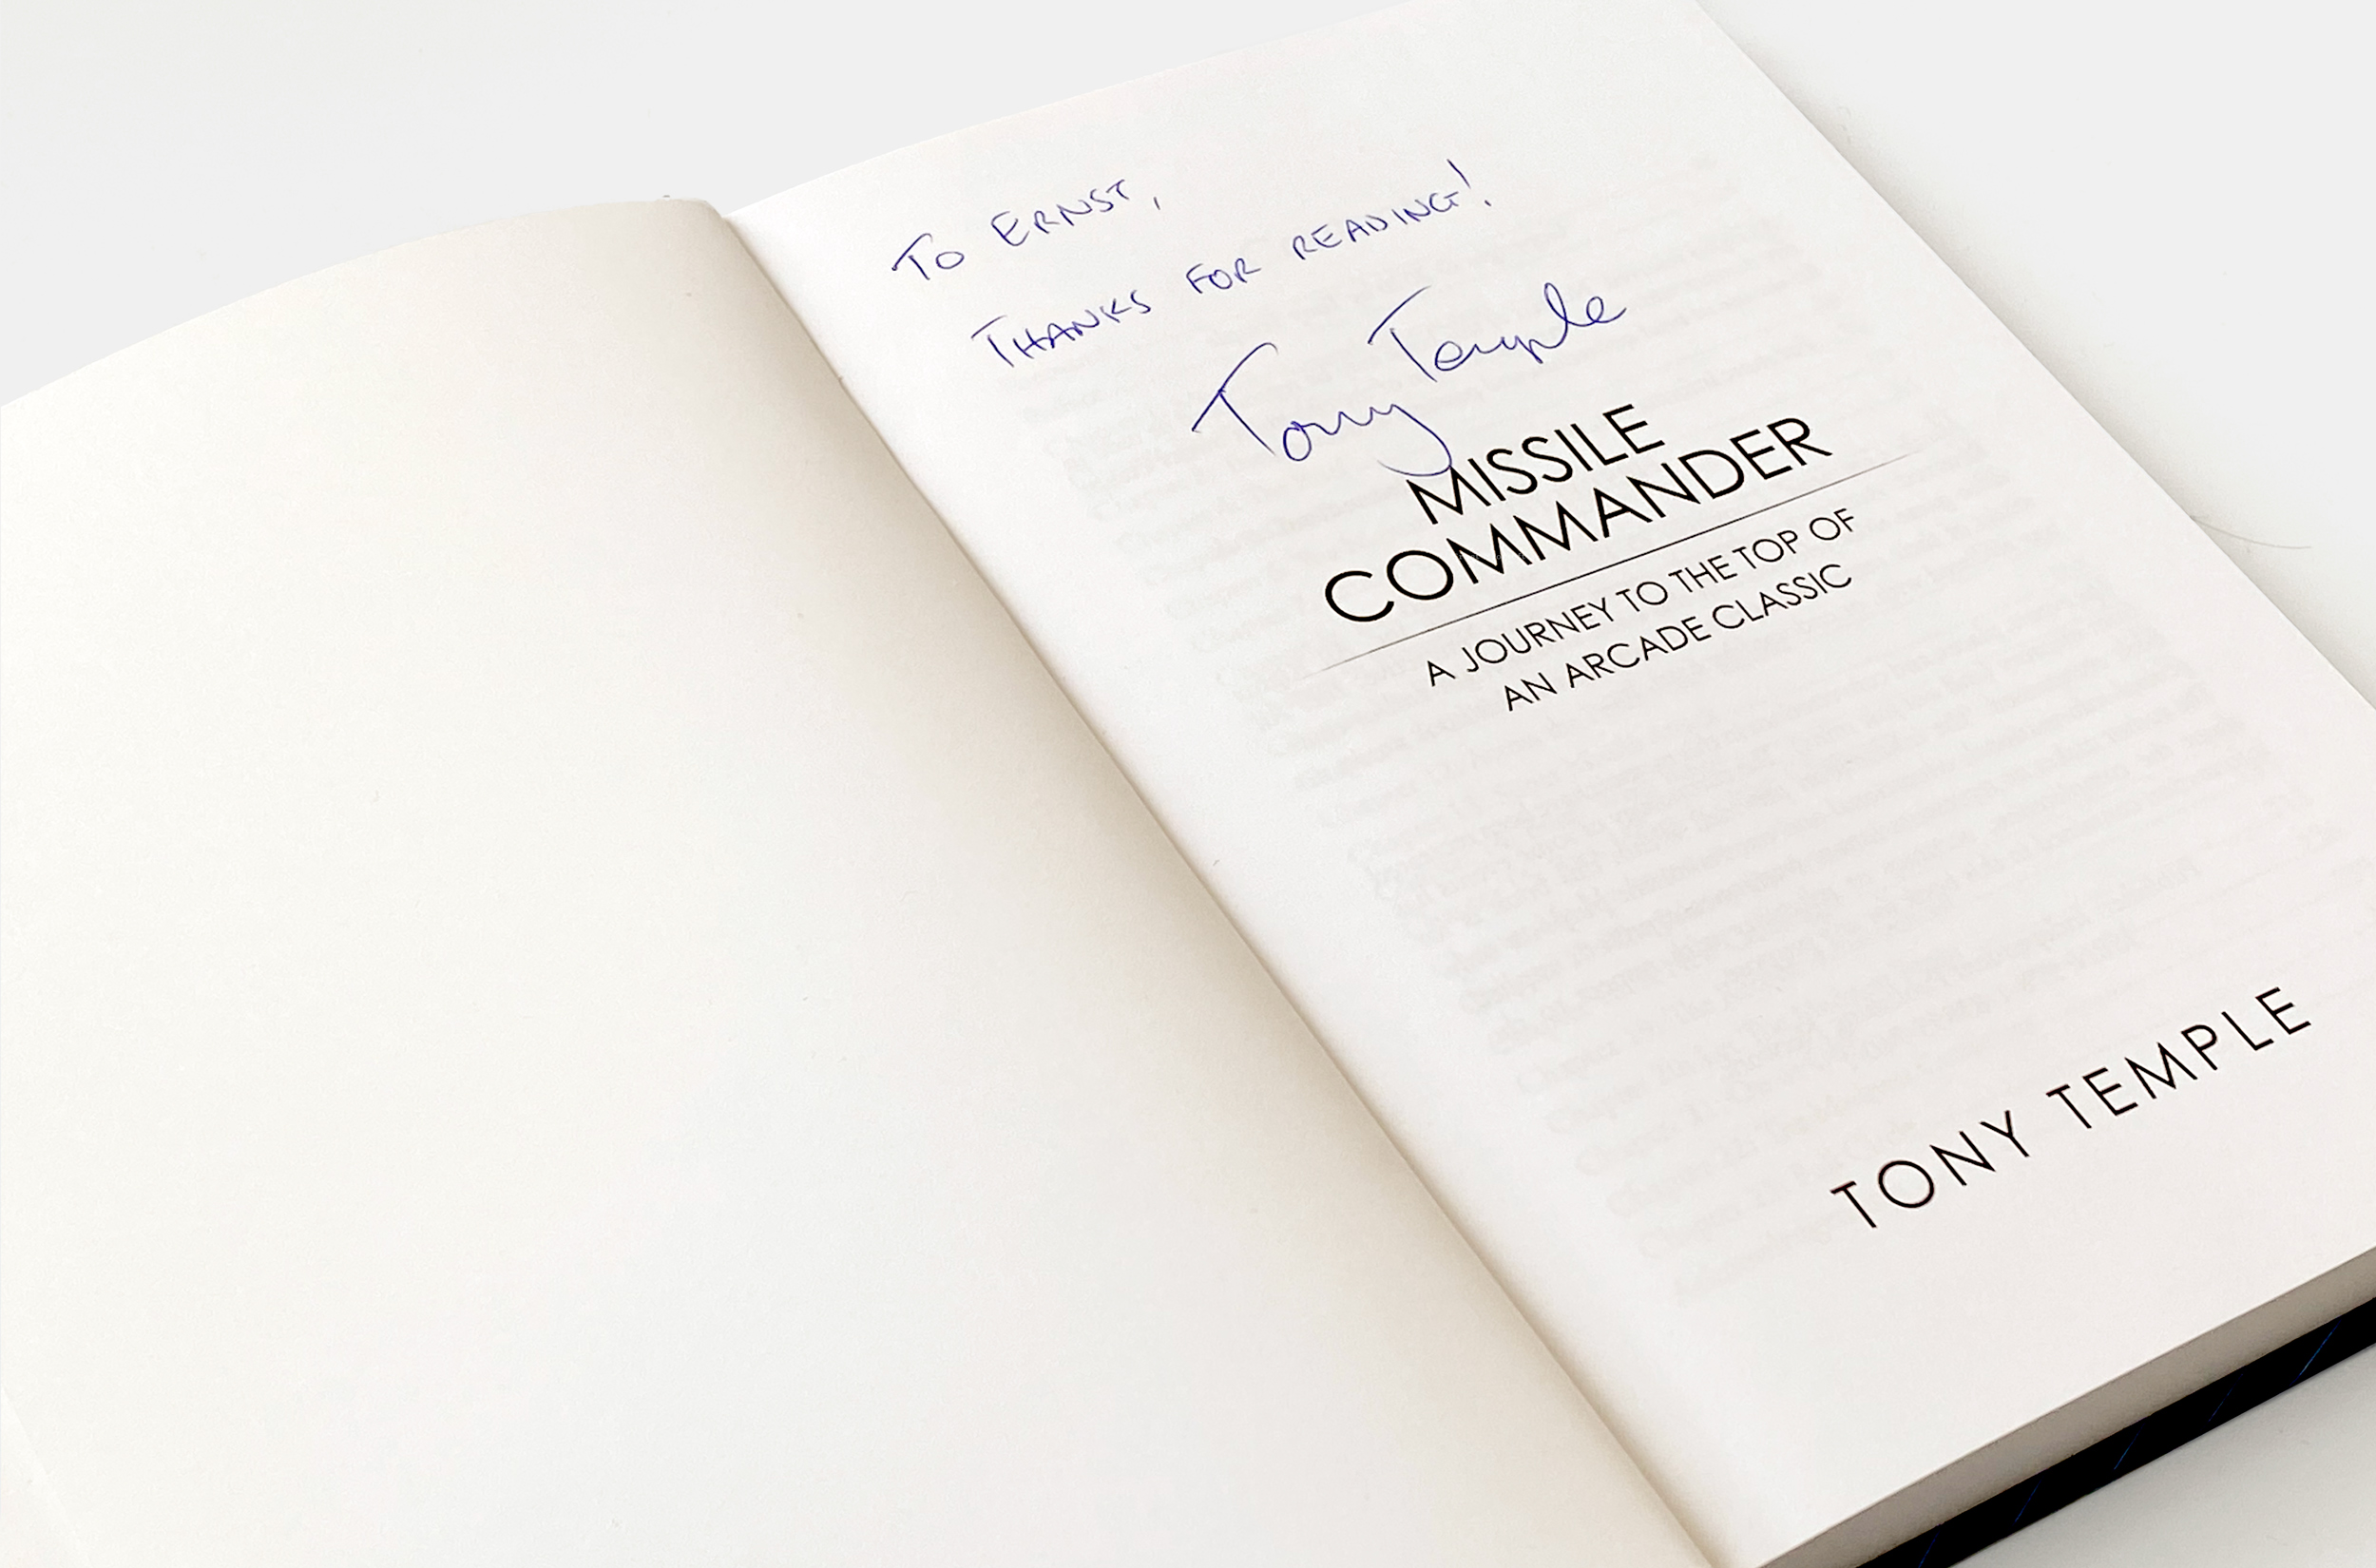 TO ERNST,
THANKS FOR READING!
Tony Temple
MISSILE
COMMANDER
A JOURNEY TO THE TOP OF
AN ARCADE CLASSIC
TONY TEMPLE